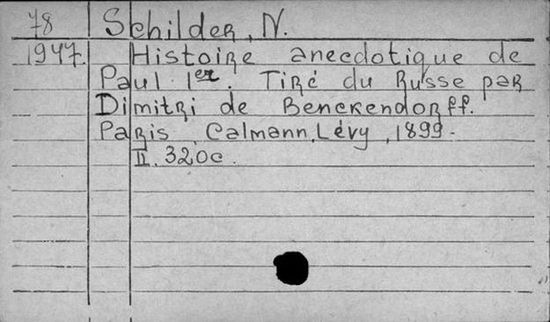 78 Schilder, N.
1947. Histoire anecdotique de
Paul 1er. Tiré du Russe par
Dimitri de Benckendorff.
Paris, Calmann, Lévy, 1899.
II. 320c.